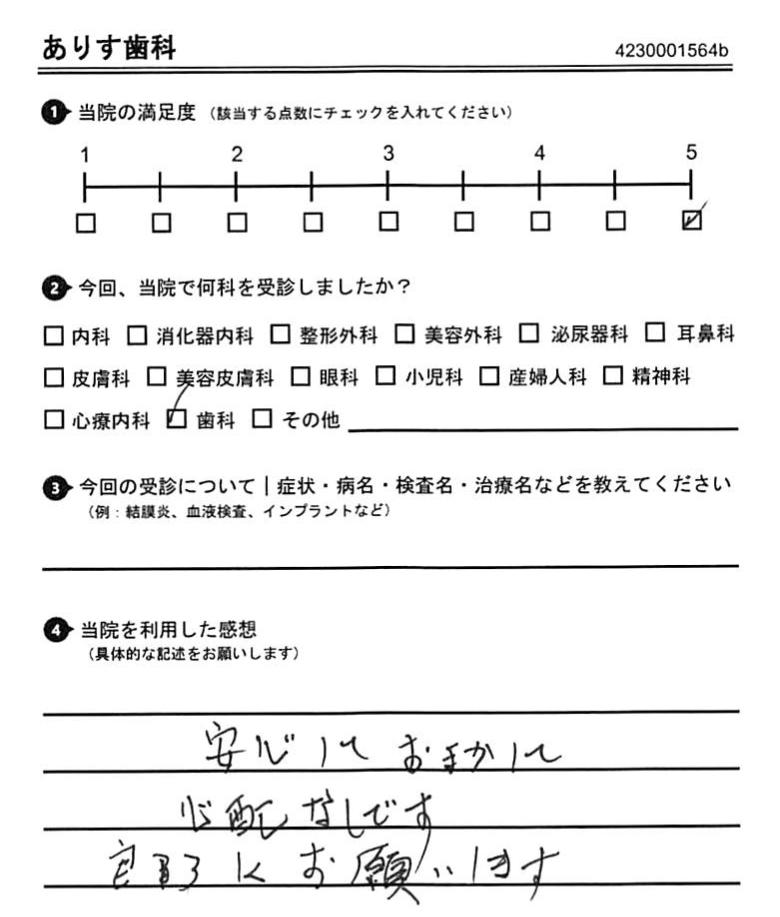 ありす歯科
4230001564b
1 当院の満足度 (該当する点数にチェックを入れてください)
1 2 3 4 5
2 今回、当院で何科を受診しましたか?
内科 消化器内科 整形外科 美容外科 泌尿器科 耳鼻科
皮膚科 美容皮膚科 眼科 小児科 産婦人科 精神科
心療内科 歯科 その他
3 今回の受診について|症状・病名・検査名・治療名などを教えてください
(例:結膜炎、血液検査、インプラントなど)
4 当院を利用した感想
(具体的な記述をお願いします)
安心して おまかして
心配なしです
お願いします